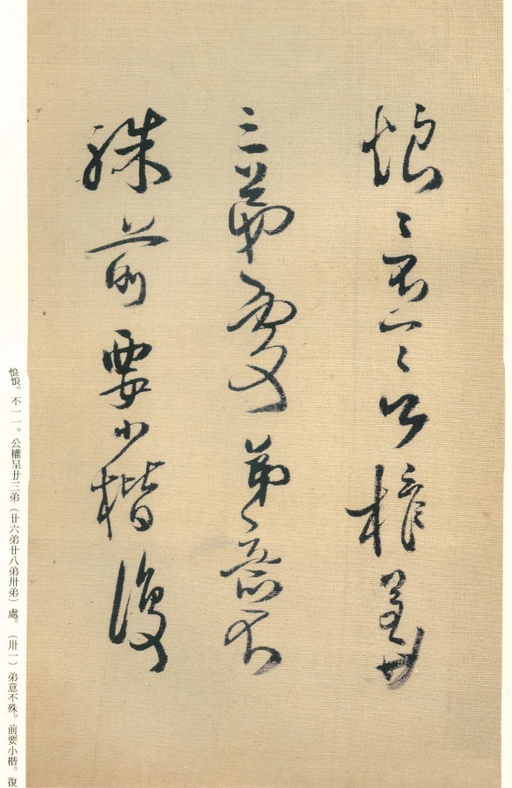 悢〻不一〻公權呈廿
三弟處弟〻意不
殊前要小楷復
悢悢。不一一。公權呈廿三弟（廿六弟廿八弟卅弟）處。（卅一）弟意不殊。前要小楷。復